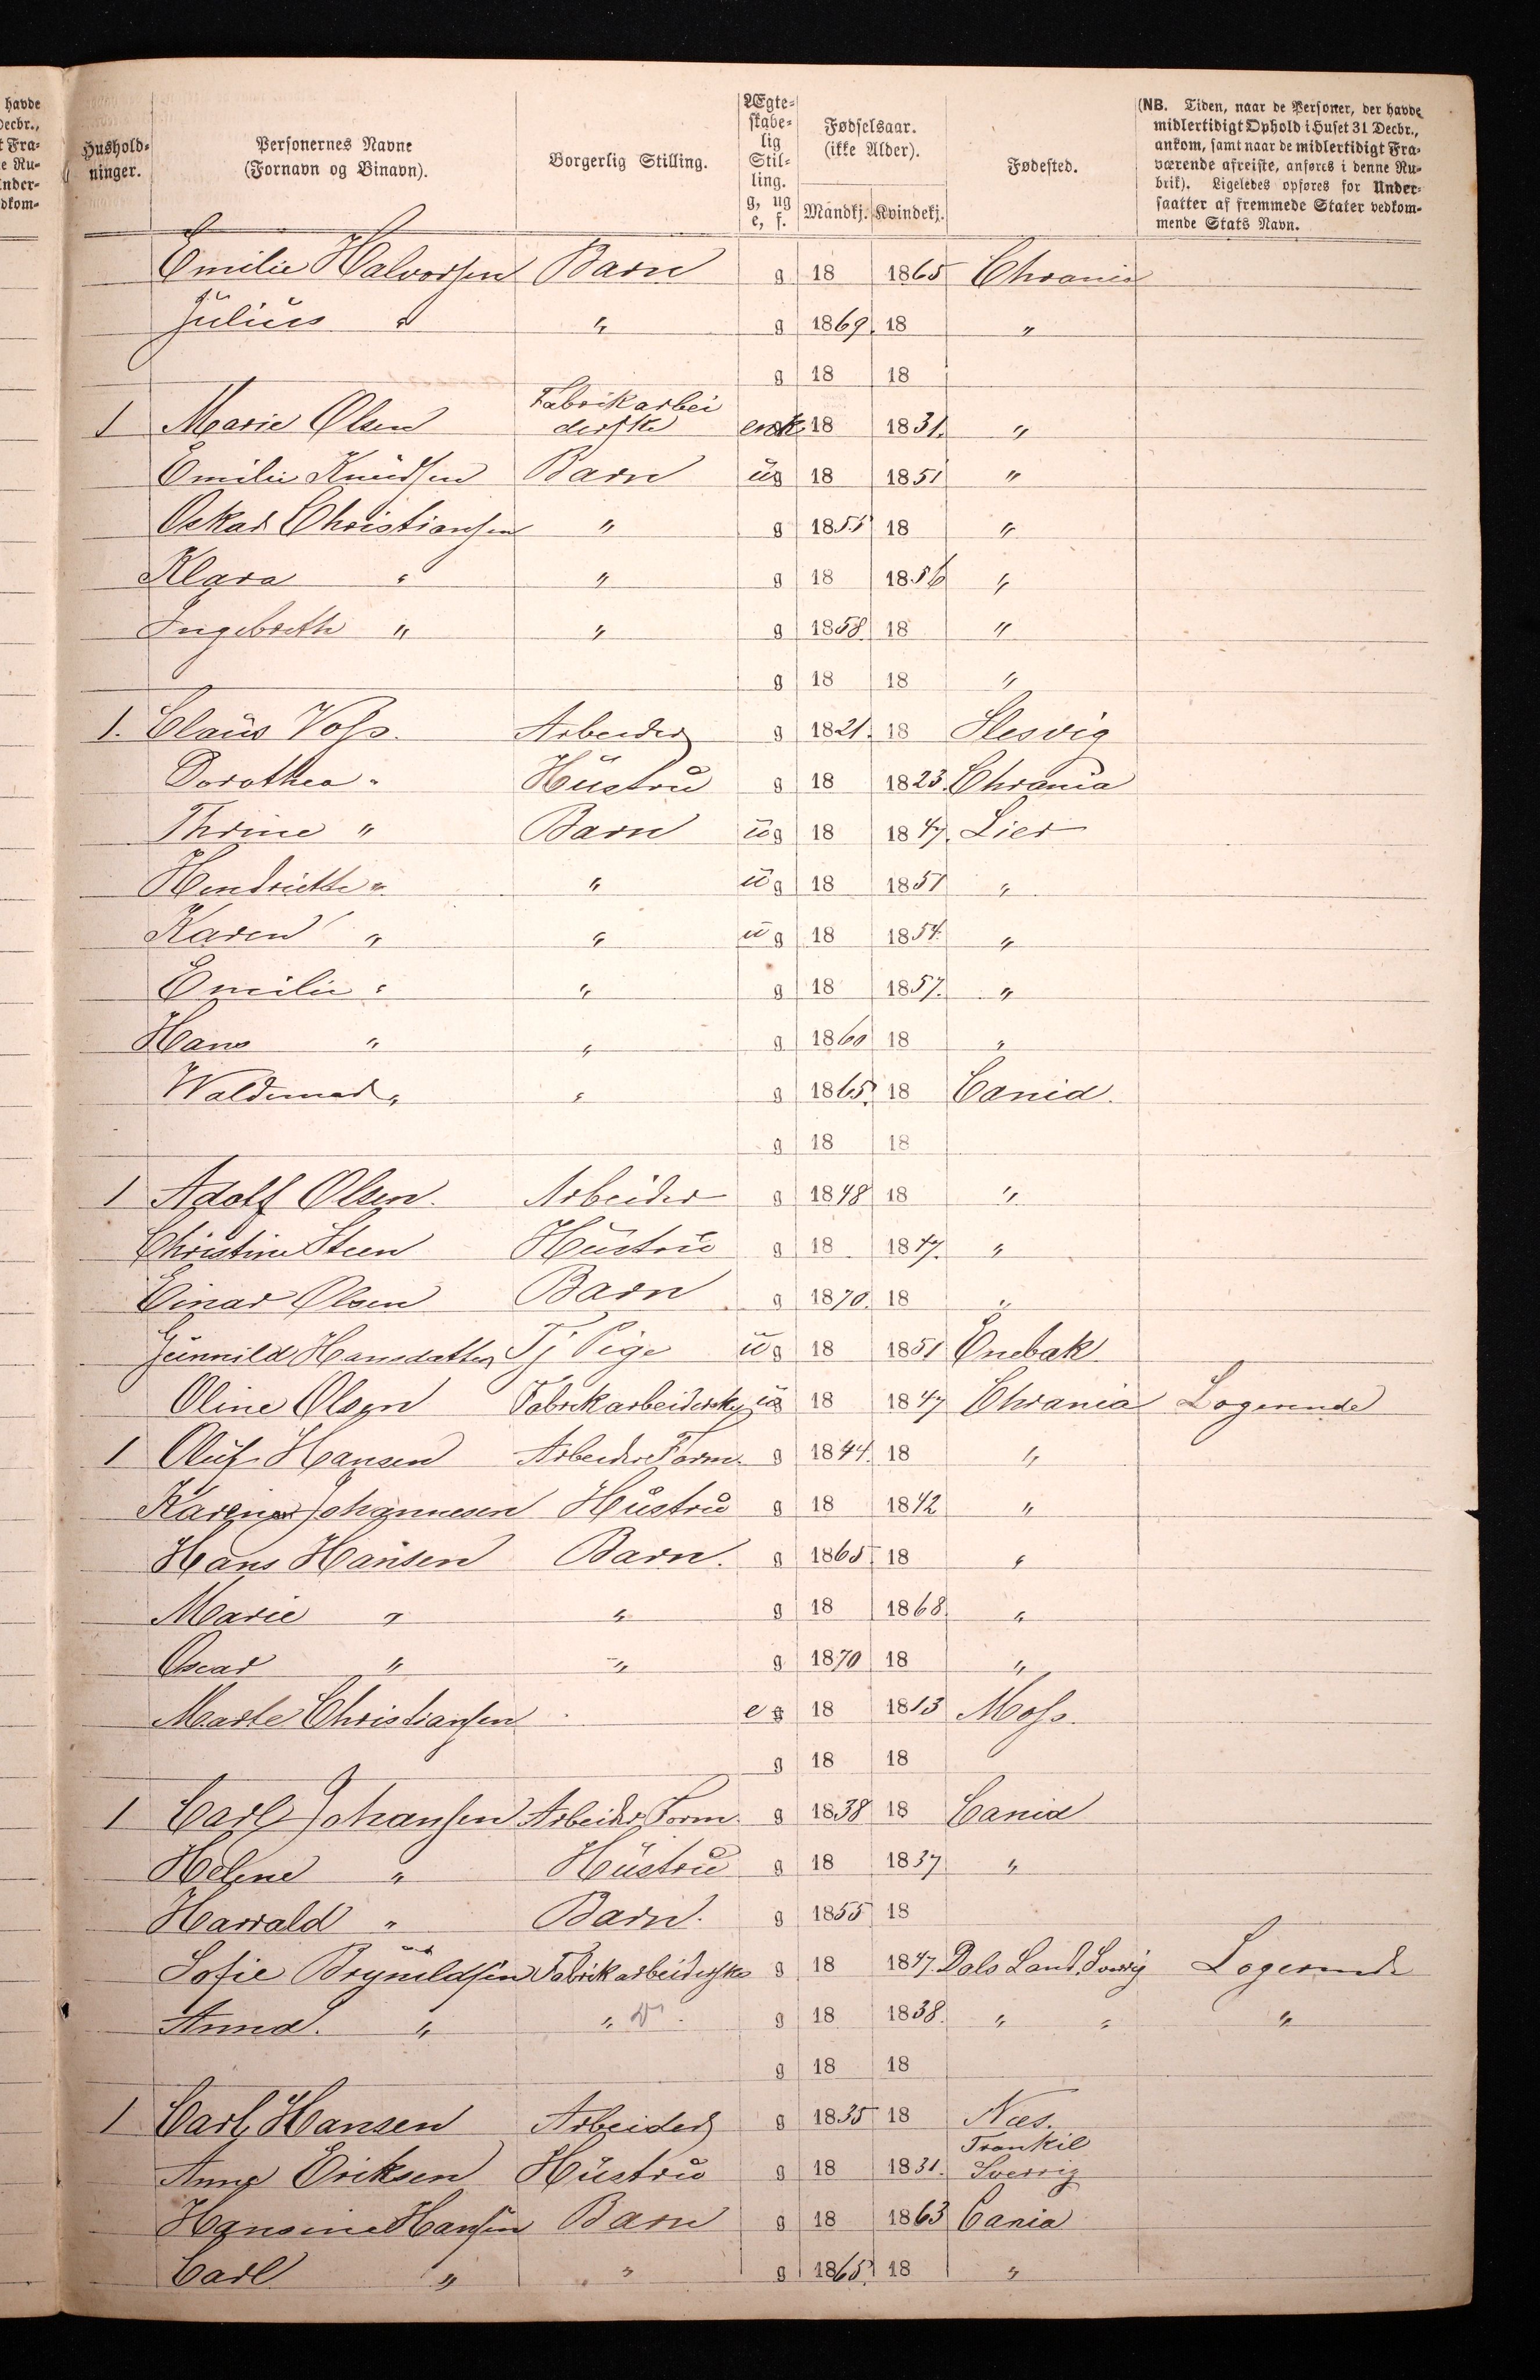 havde
Decbr.,
t Fra-
e Ru-
Under-
dkom-
Hushold-
ninger.
Personernes Navne
(Fornavn og Binavn).
Borgerlig Stilling.
Ægte-
skabe-
lig
Stil-
ling.
g, ug
e, f.
Fødselsaar.
(ikke Alder).
Mandkj. Kvindekj.
Fødested.
(NB. Tiden, naar de Personer, der havde
midlertidigt Ophold i Huset 31 Decbr.,
ankom, samt naar de midlertidigt Fra-
værende afreiste, anføres i denne Ru-
brik). Ligeledes opføres for Under-
saatter af fremmede Stater vedkom-
mende Stats Navn.
Emilie Halvorsen Barn g 18 1865 Chrania
Julius " " g 1869. 18 "
g 18 18
1 Marie Olsen Fabrikarbei
derske enk. 18 1831. "
Emilie Knudsen Barn ug 18 1851 "
Oskar Christiansen " g 1855 18 "
Klara " " g 18 1856 "
Ingebreth " " g 1858. 18 "
g 18 18 "
1. Claus Voss. Arbeider g 1821. 18 Slesvig
Dorothea " Hustru g 18 1823. Chrania
Thrine " Barn ug 18 1847. Lier
Hendriette " " ug 18 1851 "
Karen " " ug 18 1854. "
Emilie " " g 18 1857. "
Hans " " g 1860 18 "
Waldemar " " g 1865. 18 Cania.
g 18 18
1 Adolf Olsen. Arbeider g 1848 18 "
Christine Steen Hustru g 18 1847. "
Einar Olsen Barn g 1870. 18 "
Gunnild Hansdatter Tj Pige ug 18 1851 Enebak
Oline Olsen Fabrikarbeiderske ug 18 1847 Chrania Logerende
1 Oluf Hansen Arbeider Form. g 1844. 18 "
Karen Johannesen Hustru g 18 1842 "
Hans Hansen Barn. g 1865 18 "
Marie " " g 18 1868. "
Oscar " " g 1870 18 "
Marte Christiansen e g 18 1813 Moss.
g 18 18
1 Carl Johansen Arbeider Form. g 1838 18 Cania
Helene " Hustru g 18 1837 "
Harrald " Barn. g 1855 18
Sofie Brynildsen Fabrikarbeiderske g 18 1847. Dals Land, Sverig Logerende
Anna. " " g 18 1838. " " "
g 18 18
1 Carl Hansen Arbeider g 1835 18 Næs.
Anne Eriksen Hustru g 18 1831. Trankil
Sverrig
Hansine Hansen Barn g 18 1863 Cania
Carl " " g 1865. 18 "